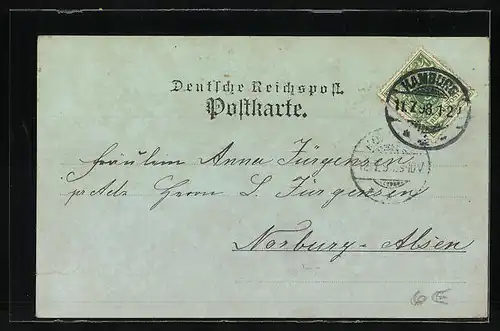 Deutsche Reichspost.
Postkarte.
HAMBURG
11.7.98.1-2 N
Fräulein Anna Jürgensen
pr Adr. Herrn L. Jürgensen
Norburg-Alsen
6E